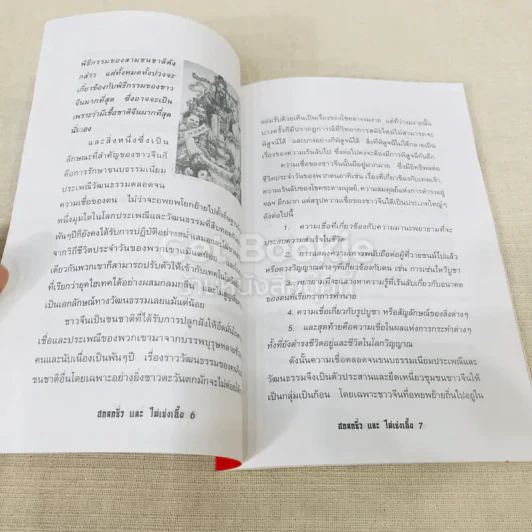 พิธีกรรมของสามชนชาติดัง
กล่าว แต่ทั้งหมดทั้งปวงจะ
เกี่ยวข้องกับพิธีกรรมของชาว
จีนมากที่สุด ซึ่งอาจจะเป็น
เพราะว่ามีเชื้อชาติจีนมากที่สุด
นั่นเอง
และสิ่งหนึ่งซึ่งเป็น
ลักษณะที่สำคัญของชาวจีนก็
คือการรักษาขนบธรรมเนียม
ประเพณีวัฒนธรรมตลอดจน
ความเชื่อของตน ไม่ว่าจะอพยพโยกย้ายไปตั้งถิ่น
หนึ่งมุมใดในโลกประเพณีและวัฒนธรรมที่สืบทอด
พันๆปีก็ยังคงได้รับการปฏิบัติอย่างสม่ำเสมอและไม่
จากวิถีชีวิตประจำวันของพวกเขาแม้
เดียวกันพวกเขาก็สามารถปรับตัวให้เข้ากับเทคโนโลยี
ที่เรียกว่ายุคไฮเทคได้อย่างผสมกลมกลืน
เป็นเอกลักษณ์ทางวัฒนธรรมเลยแม้แต่น้อย
ชาวจีนเป็นชนชาติที่ได้รับการปลูกฝังให้ยึดมั่น
เชื่อและประเพณีของพวกเขามาจากบรรพบุรุษหลาย
คนและนับเนื่องเป็นพันๆปี เรื่องราววัฒนธรรมของคน
ชนชาติอื่นโดยเฉพาะอย่างยิ่งชาวตะวันตกมักจะไม่ค่อย
ฮกลกซิ่ว และ ไฉ่เซ่งเอี้ย 6
ยอมรับด้วยเห็นเป็นเรื่องของโชคลางงมงาย แต่ที่ว่างมงายนั้น
บางครั้งก็มีปรากฏการณ์ที่วิทยาการสมัยใหม่ไม่สามารถจะ
พิสูจน์ได้ และบางอย่างก็พิสูจน์ได้ สิ่งที่พิสูจน์ไม่ได้กลายเป็น
เรื่องของความเร้นลับไป ซึ่งต่อไปคงจะต้องมีการพิสูจน์กันอีก
ความเชื่อของชาวจีนนั้นมีอยู่มากมาย ซึ่งมีอิทธิพลต่อ
ชีวิตประจำวันของพวกตนอาทิเช่น ความเชื่อเกี่ยวกับเทพเจ้า
ความเร้นลับของโชคชะตามนุษย์, ความสมดุลย์แห่งการดำรงอยู่
ฯลฯ อีกมาก แต่สรุปความเชื่อของชาวจีนได้เป็นประเภทใหญ่ๆ
ดังต่อไปนี้
1. ความเชื่อที่เกี่ยวข้องกับความเพียรพยายามที่จะ
ประสบความสำเร็จในชีวิต
2. การแสดงความเคารพนับถือต่อผู้ที่วายชนม์ไปแล้ว
หรือดวงวิญญาณต่างๆที่เกี่ยวข้องกับตน เช่น การเซ่นไหว้บูชา
ความพยายามที่จะแสวงหาความรู้ที่เร้นลับเกี่ยวกับอนาคต
ของตนที่เรียกว่าการทำนาย
4. ความเชื่อเกี่ยวกับรูปบูชา หรือสัญลักษณ์ของสิ่งต่างๆ
5. และสุดท้ายคือความเชื่อในผลแห่งการกระทำต่างๆ
ทั้งที่ยังดำรงชีวิตอยู่และชีวิตในโลกวิญญาณ
ดังนั้นความเชื่อตลอดจนขนบธรรมเนียมประเพณีและ
วัฒนธรรมจึงเป็นตัวประสานและยึดเหนี่ยวชุมชนชาวจีนให้
เป็นกลุ่มเป็นก้อน โดยเฉพาะชาวจีนที่อพยพย้ายถิ่นไปอยู่ใน
ฮกลกซิ่ว และ ไฉ่เซ่งเอี้ย 7